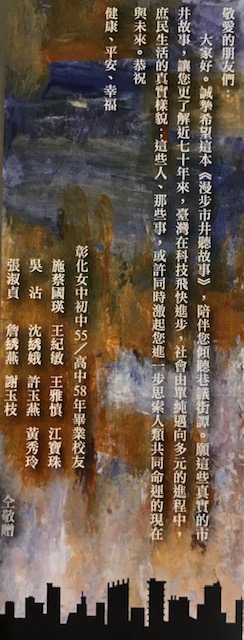 敬愛的朋友們：
大家好。誠摯希望這本《漫步市井聽故事》，陪伴您傾聽巷議街譚。願這些真實的市
井故事，讓您更了解近七十年來，臺灣在科技飛快進步，社會由單純邁向多元的進程中，
庶民生活的真實樣貌；這些人、那些事，或許同時激起您進一步思索人類共同命運的現在
與未來。恭祝
健康、平安、幸福
彰化女中初中55／高中58年畢業校友
施蔡國瑛 王紀敏 王雅慎 江寶珠
吳 沾 沈綉娥 許玉燕 黃秀玲
張淑貞 詹綉燕 謝玉枝
仝敬贈